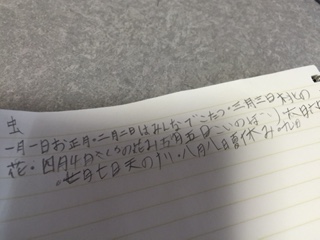 虫
一月一日お正月・二月二日はみんなでこたつ・三月三日
花・四月四日さくらの花み五月五日こいのぼり六日
・七月七日天の川・八月八日夏休み・九